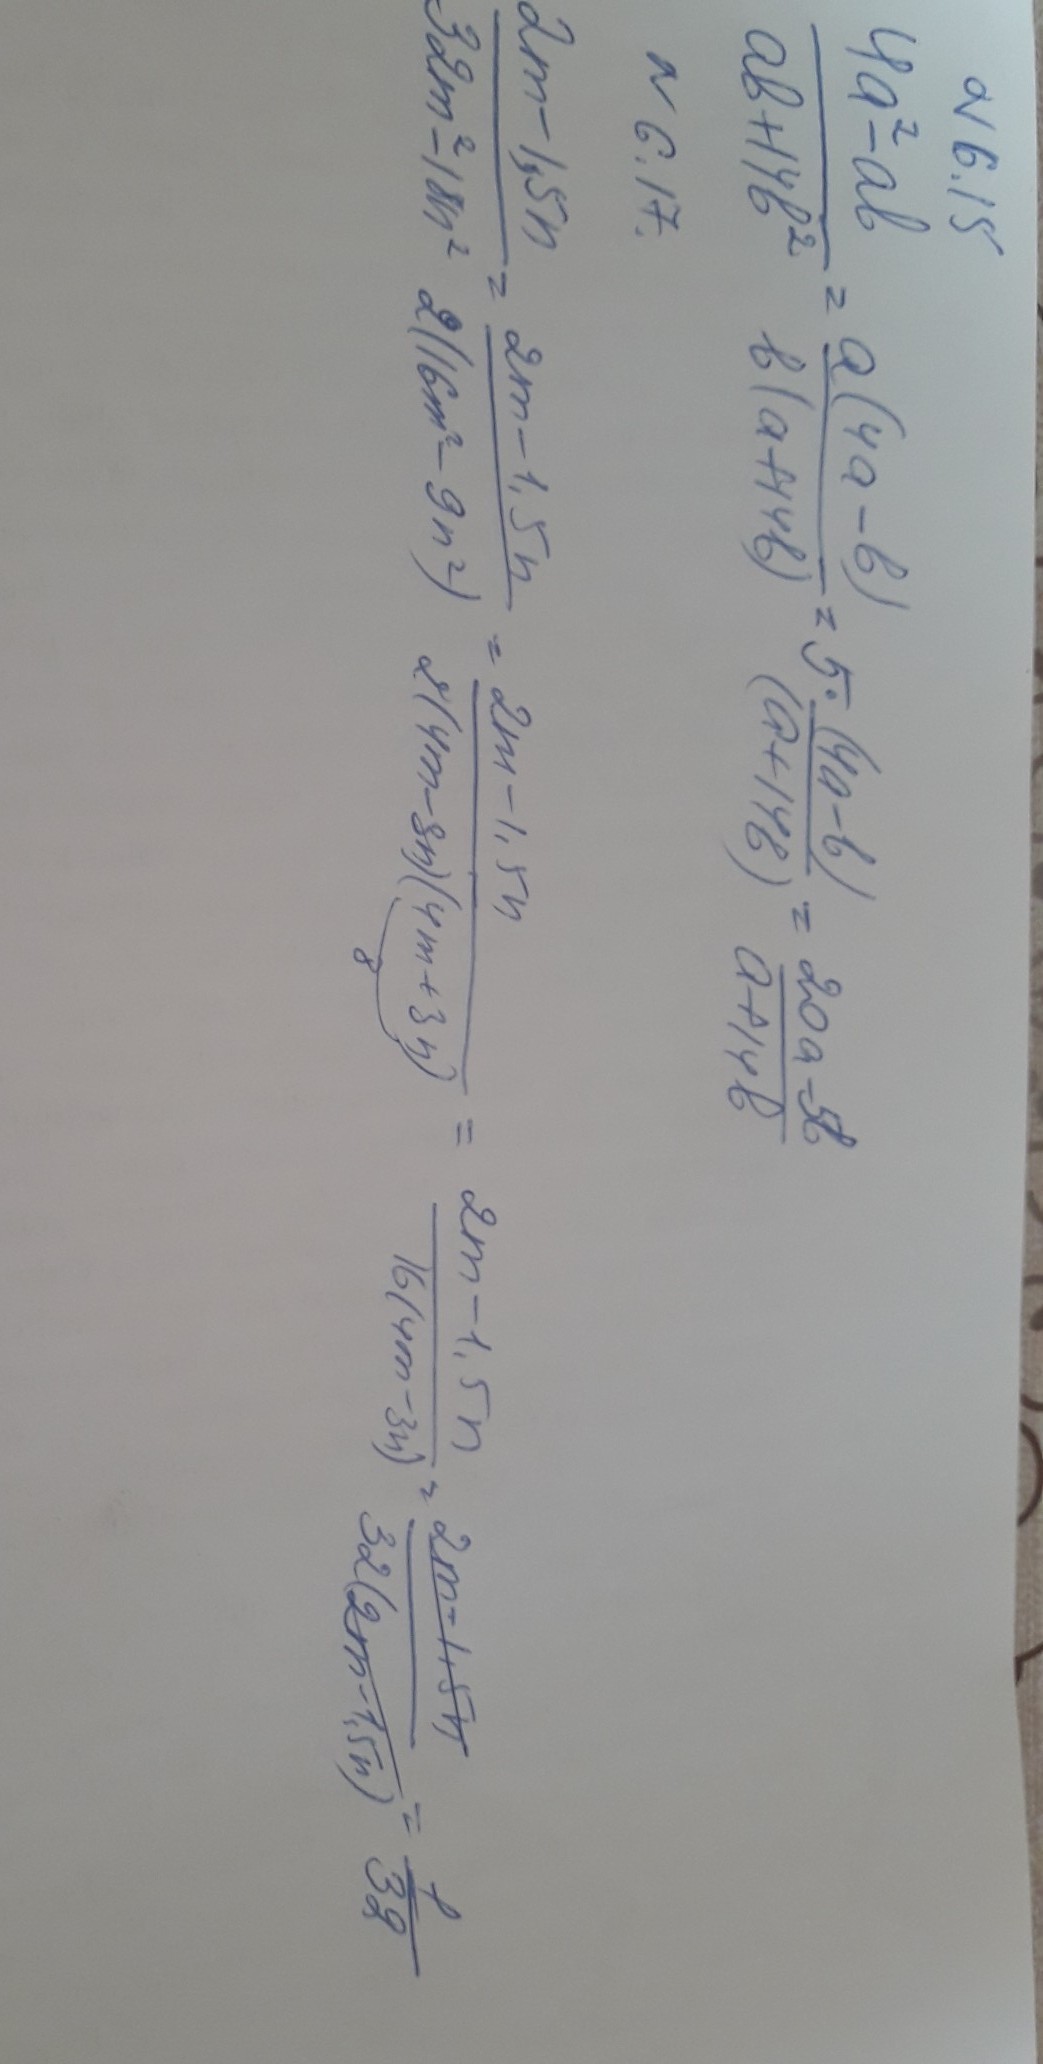 N 6.15
4a²-ab / ab+14b² = a(4a-b) / b(a+14b) = 5·(4a-b) / (a+14b) = 20a-5b / a+14b
N 6.17.
2m-1,5n / 32m²-18n² = 2m-1,5n / 2(16m²-9n²) = 2m-1,5n / 2(4m-3n)(4m+3n) = 2m-1,5n / 16(4m-3n) = 2m-1,5n / 32(2m-1,5n) = 1 / 32
8